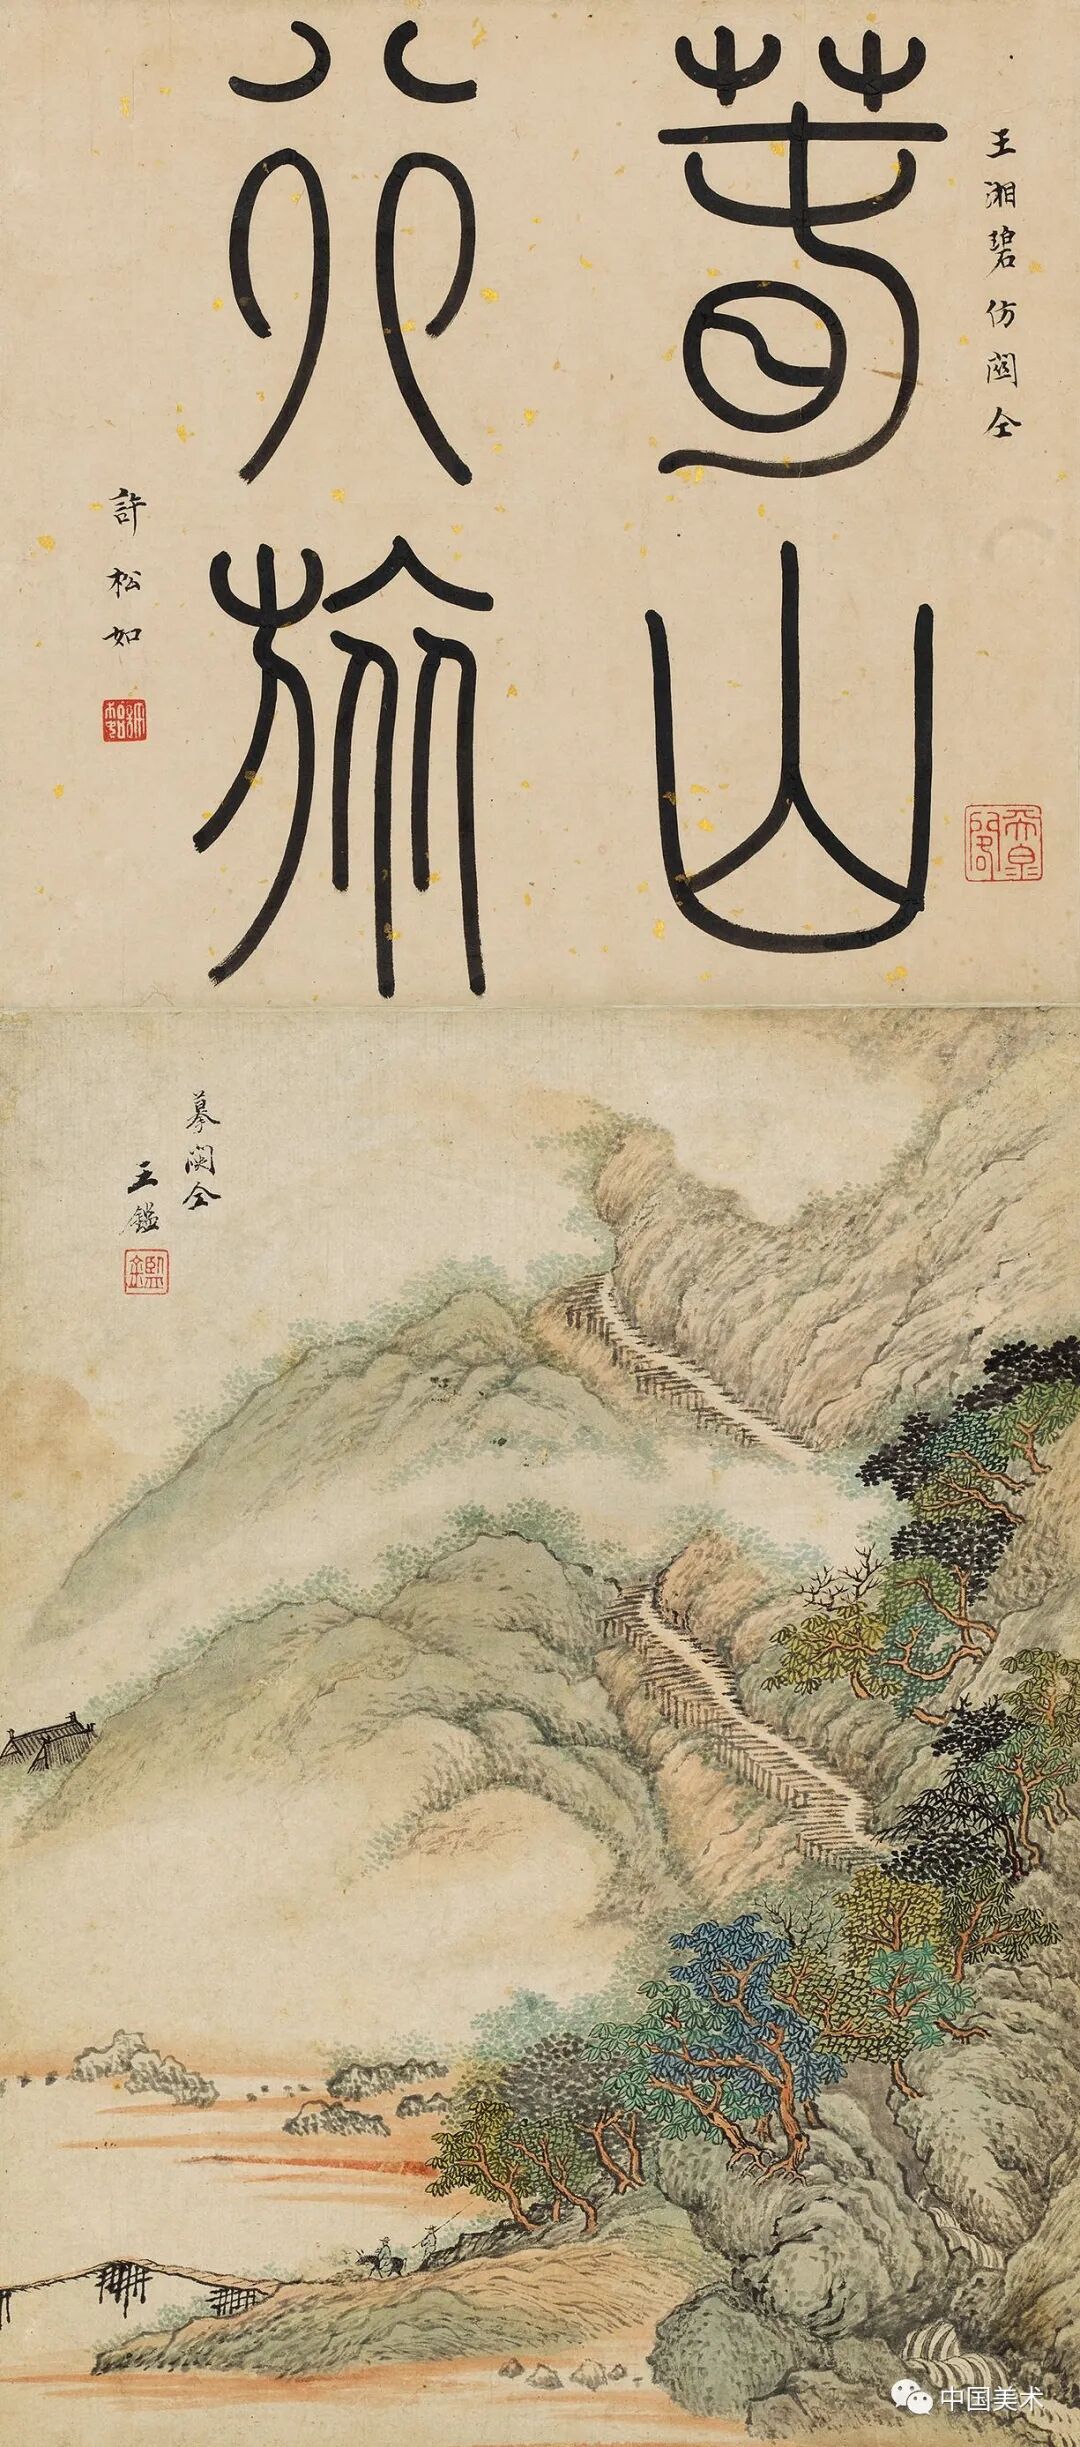 王湘碧仿關仝
春山
行旅
許松如
摹關仝
王鑑
鑑
中国美术